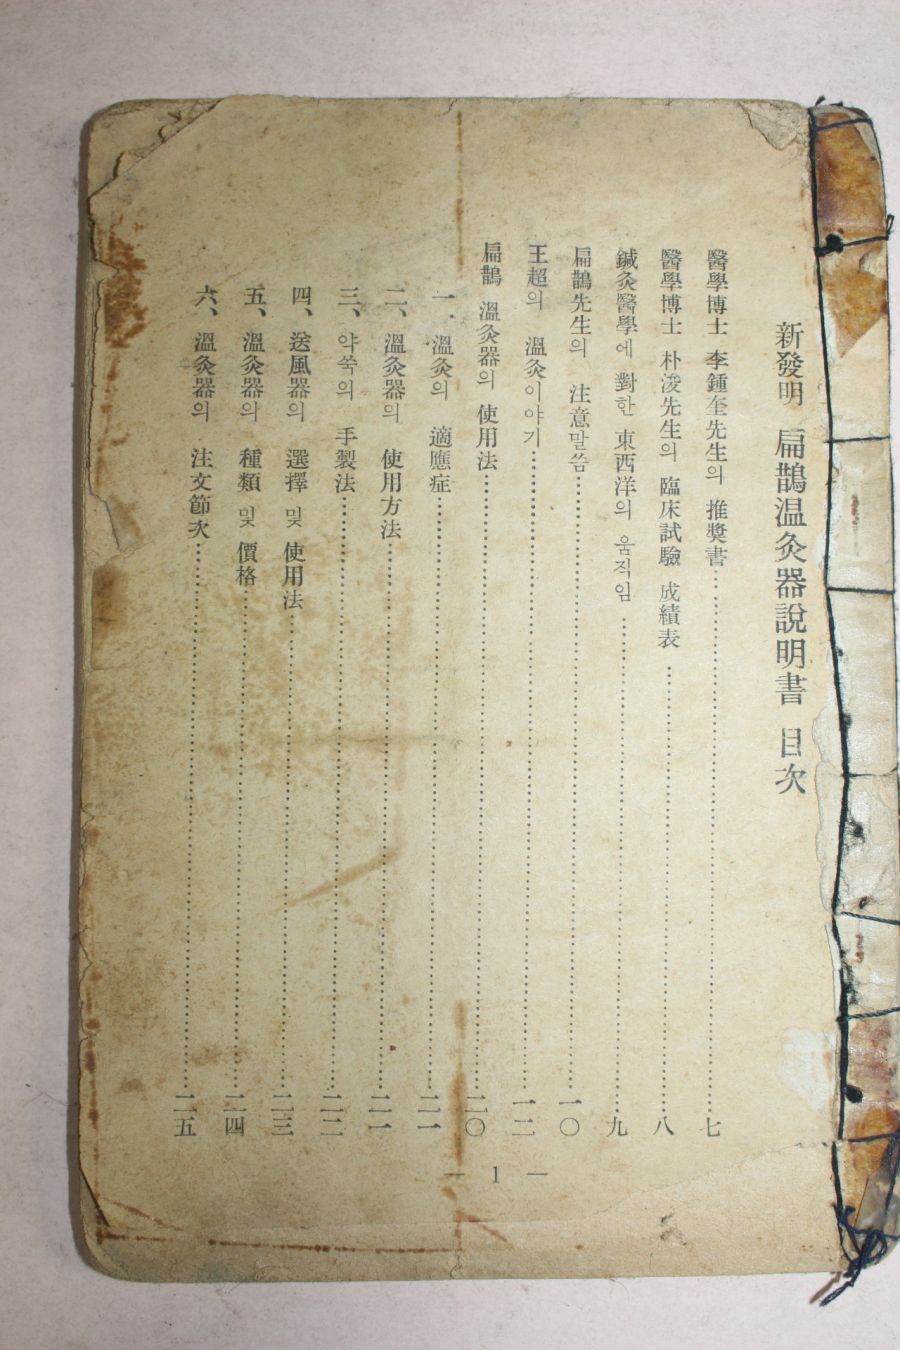 新發明 扁鵲温灸器說明書 目次
醫學博士 李鍾奎先生의 推奬書……七
醫學博士 朴浚先生의 臨床試驗 成績表……八
鍼灸醫學에 對한 東西洋의 움직임……九
扁鵲先生의 注意말씀……一〇
王超의 溫灸이야기……一二
扁鵲 溫灸器의 使用法……二〇
一、溫灸의 適應症……二一
二、溫灸器의 使用方法……二一
三、약쑥의 手製法……二二
四、送風器의 選擇 및 使用法……二三
五、溫灸器의 種類 및 價格……二四
六、溫灸器의 注文節次……二五
— 1 —